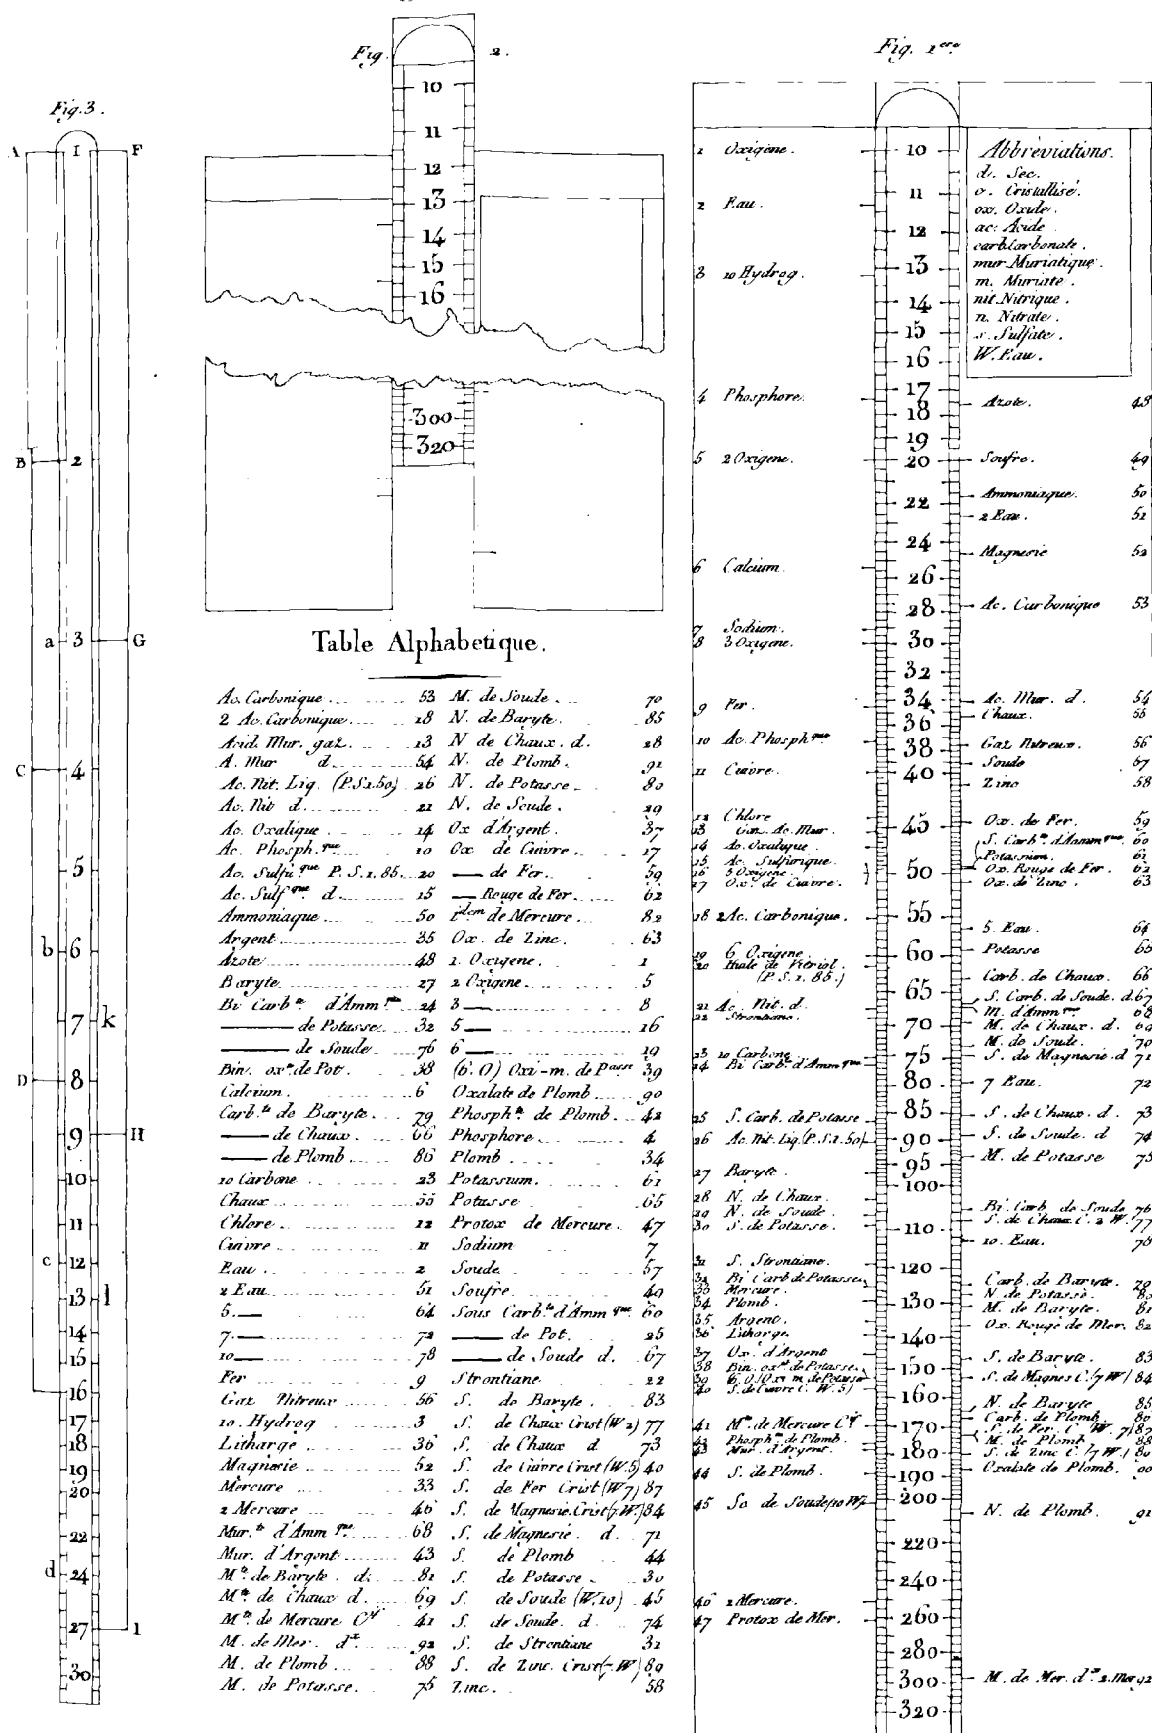 Fig. 3.
A 1 F
B 2
a 3 G
C 4
5
b 6
7 k
D 8
9 H
10
11
c 12
13 l
14
15
16
17
18
19
20
22
d 24
27 I
30
Fig. 2.
10
11
12
13
14
15
16
300
320
Table Alphabetique.
Ac. Carbonique 53
2 Ac. Carbonique 18
Acid. Mur. gaz. 13
A. Mur d. 54
Ac. Nit. Liq. (P.S.1.50) 26
Ac. Nit d. 21
Ac. Oxalique 14
Ac. Phosph.que 10
Ac. Sulfu que P.S.1.85. 20
Ac. Sulf que d. 15
Ammoniaque 50
Argent 35
Azote 48
Baryte 27
Bi Carb.te d'Amm 24
—— de Potasse 32
—— de Soude 76
Bin. ox.te de Pot. 38
Calcium. 6
Carb.te de Baryte. 79
—— de Chaux. 66
—— de Plomb. 86
10 Carbone 23
Chaux 55
Chlore 12
Cuivre 11
Eau 2
2 Eau 51
5.— 64
7.— 72
10.— 78
Fer 9
Gaz Nitreux 56
10. Hydrog 3
Litharge 36
Magnesie 52
Mercure 33
2 Mercure 46
Mur.te d'Amm 68
Mur. d'Argent 43
M.te de Baryte. d. 81
M.te de Chaux d. 69
M.te de Mercure 41
M. de Mer. d.x 92
M. de Plomb 88
M. de Potasse. 75
M. de Soude 70
N. de Baryte. 85
N de Chaux. d. 28
N. de Plomb. 91
N. de Potasse 80
N. de Soude. 29
Ox d'Argent 37
Ox. de Cuivre 17
—— de Fer. 59
—— Rouge de Fer. 62
Idem de Mercure 82
Ox. de Zinc. 63
1. Oxigene. 1
2 Oxigene. 5
3— 8
5— 16
6— 19
(6. O) Oxi-m. de P.asse 39
Oxalate de Plomb 90
Phosph.te de Plomb 42
Phosphore 4
Plomb 34
Potassium. 61
Potasse 65
Protox de Mercure. 47
Sodium 7
Soude 57
Soufre 49
Sous Carb.te d'Amm que 60
—— de Pot. 25
—— de Soude d. 67
Strontiane 22
S. de Baryte 83
S. de Chaux Crist (W 2) 77
S. de Chaux d 73
S. de Cuivre Crist (W.5) 40
S. de Fer Crist (W 7) 87
S. de Magnesie Crist (7.W.) 84
S. de Magnesie. d. 71
S. de Plomb 44
S. de Potasse 30
S. de Soude (W.10) 45
S. de Soude. d. 74
S. de Strontiane 31
S. de Zinc. Crist (7.W) 89
Zinc. 58
Fig. 1ere
1 Oxigene.
2 Eau.
3 10 Hydrog
4 Phosphore.
5 2 Oxigene.
6 Calcium.
7 Sodium.
8 3 Oxigene.
9 Fer.
10 Ac. Phosph que
11 Cuivre.
12 Chlore
13 Gaz. Ac. Mur.
14 Ac. Oxalique
15 Ac. Sulfurique.
16 5 Oxigene.
17 Ox. de Cuivre.
18 2 Ac. Carbonique.
19 6 Oxigene.
20 Huile de Vitriol.
(P.S.1.85.)
21 Ac. Nit. d.
22 Strontiane.
23 10 Carbone
24 Bi Carb.te d'Amm que
25 S. Carb. de Potasse
26 Ac. Nit. Liq. (P.S.1.50)
27 Baryte
28 N. de Chaux.
29 N. de Soude
30 S. de Potasse.
31 S. Strontiane.
32 Bi Carb de Potasse
33 Mercure.
34 Plomb.
35 Argent.
36 Litharge.
37 Ox. d'Argent
38 Bin. ox.te de Potasse.
39 (6.O) Oxi m. de Potasse
40 S. de Cuivre C. W. 5)
41 M.te de Mercure
42 Phosph.te de Plomb.
43 Mur. d'Argent
44 S. de Plomb.
45 So de Soude (10 W)
46 2 Mercure.
47 Protox de Mer.
10
11
12
13
14
15
16
17
18
19
20
22
24
26
28
30
32
34
36
38
40
45
50
55
60
65
70
75
80
85
90
95
100
110
120
130
140
150
160
170
180
190
200
220
240
260
280
300
320
Abbréviations.
d. Sec.
c. Cristallisé.
ox. Oxide.
ac. Acide
carb. Carbonate.
mur. Muriatique.
m. Muriate.
nit. Nitrique.
n. Nitrate.
s. Sulfate.
W. Eau.
Azote. 48
Soufre. 49
Ammoniaque. 50
2 Eau. 51
Magnesie 52
Ac. Carbonique 53
Ac. Mur. d. 54
Chaux. 55
Gaz Nitreux. 56
Soude 57
Zinc 58
Ox. de Fer. 59
S. Carb.te d'Amm que. 60
Potassium. 61
Ox. Rouge de Fer. 62
Ox. de Zinc. 63
5. Eau. 64
Potasse 65
Carb. de Chaux. 66
S. Carb. de Soude. d. 67
M. d'Amm 68
M. de Chaux. d. 69
M. de Soude. 70
S. de Magnesie. d 71
7 Eau. 72
S. de Chaux. d. 73
S. de Soude. d 74
M. de Potasse 75
Bi. Carb. de Soude 76
S. de Chaux C. 2 W. 77
10. Eau. 78
Carb. de Baryte. 79
N. de Potasse. 80
M. de Baryte. 81
Ox. Rouge de Mer. 82
S. de Baryte. 83
S. de Magnes C. (7 W) 84
N. de Baryte 85
Carb. de Plomb. 86
S. de Fer. C (W. 7) 87
M. de Plomb 88
S. de Zinc C. (7 W.) 89
Oxalate de Plomb. 90
N. de Plomb. 91
M. de Mer. d.x 2. Mer 92